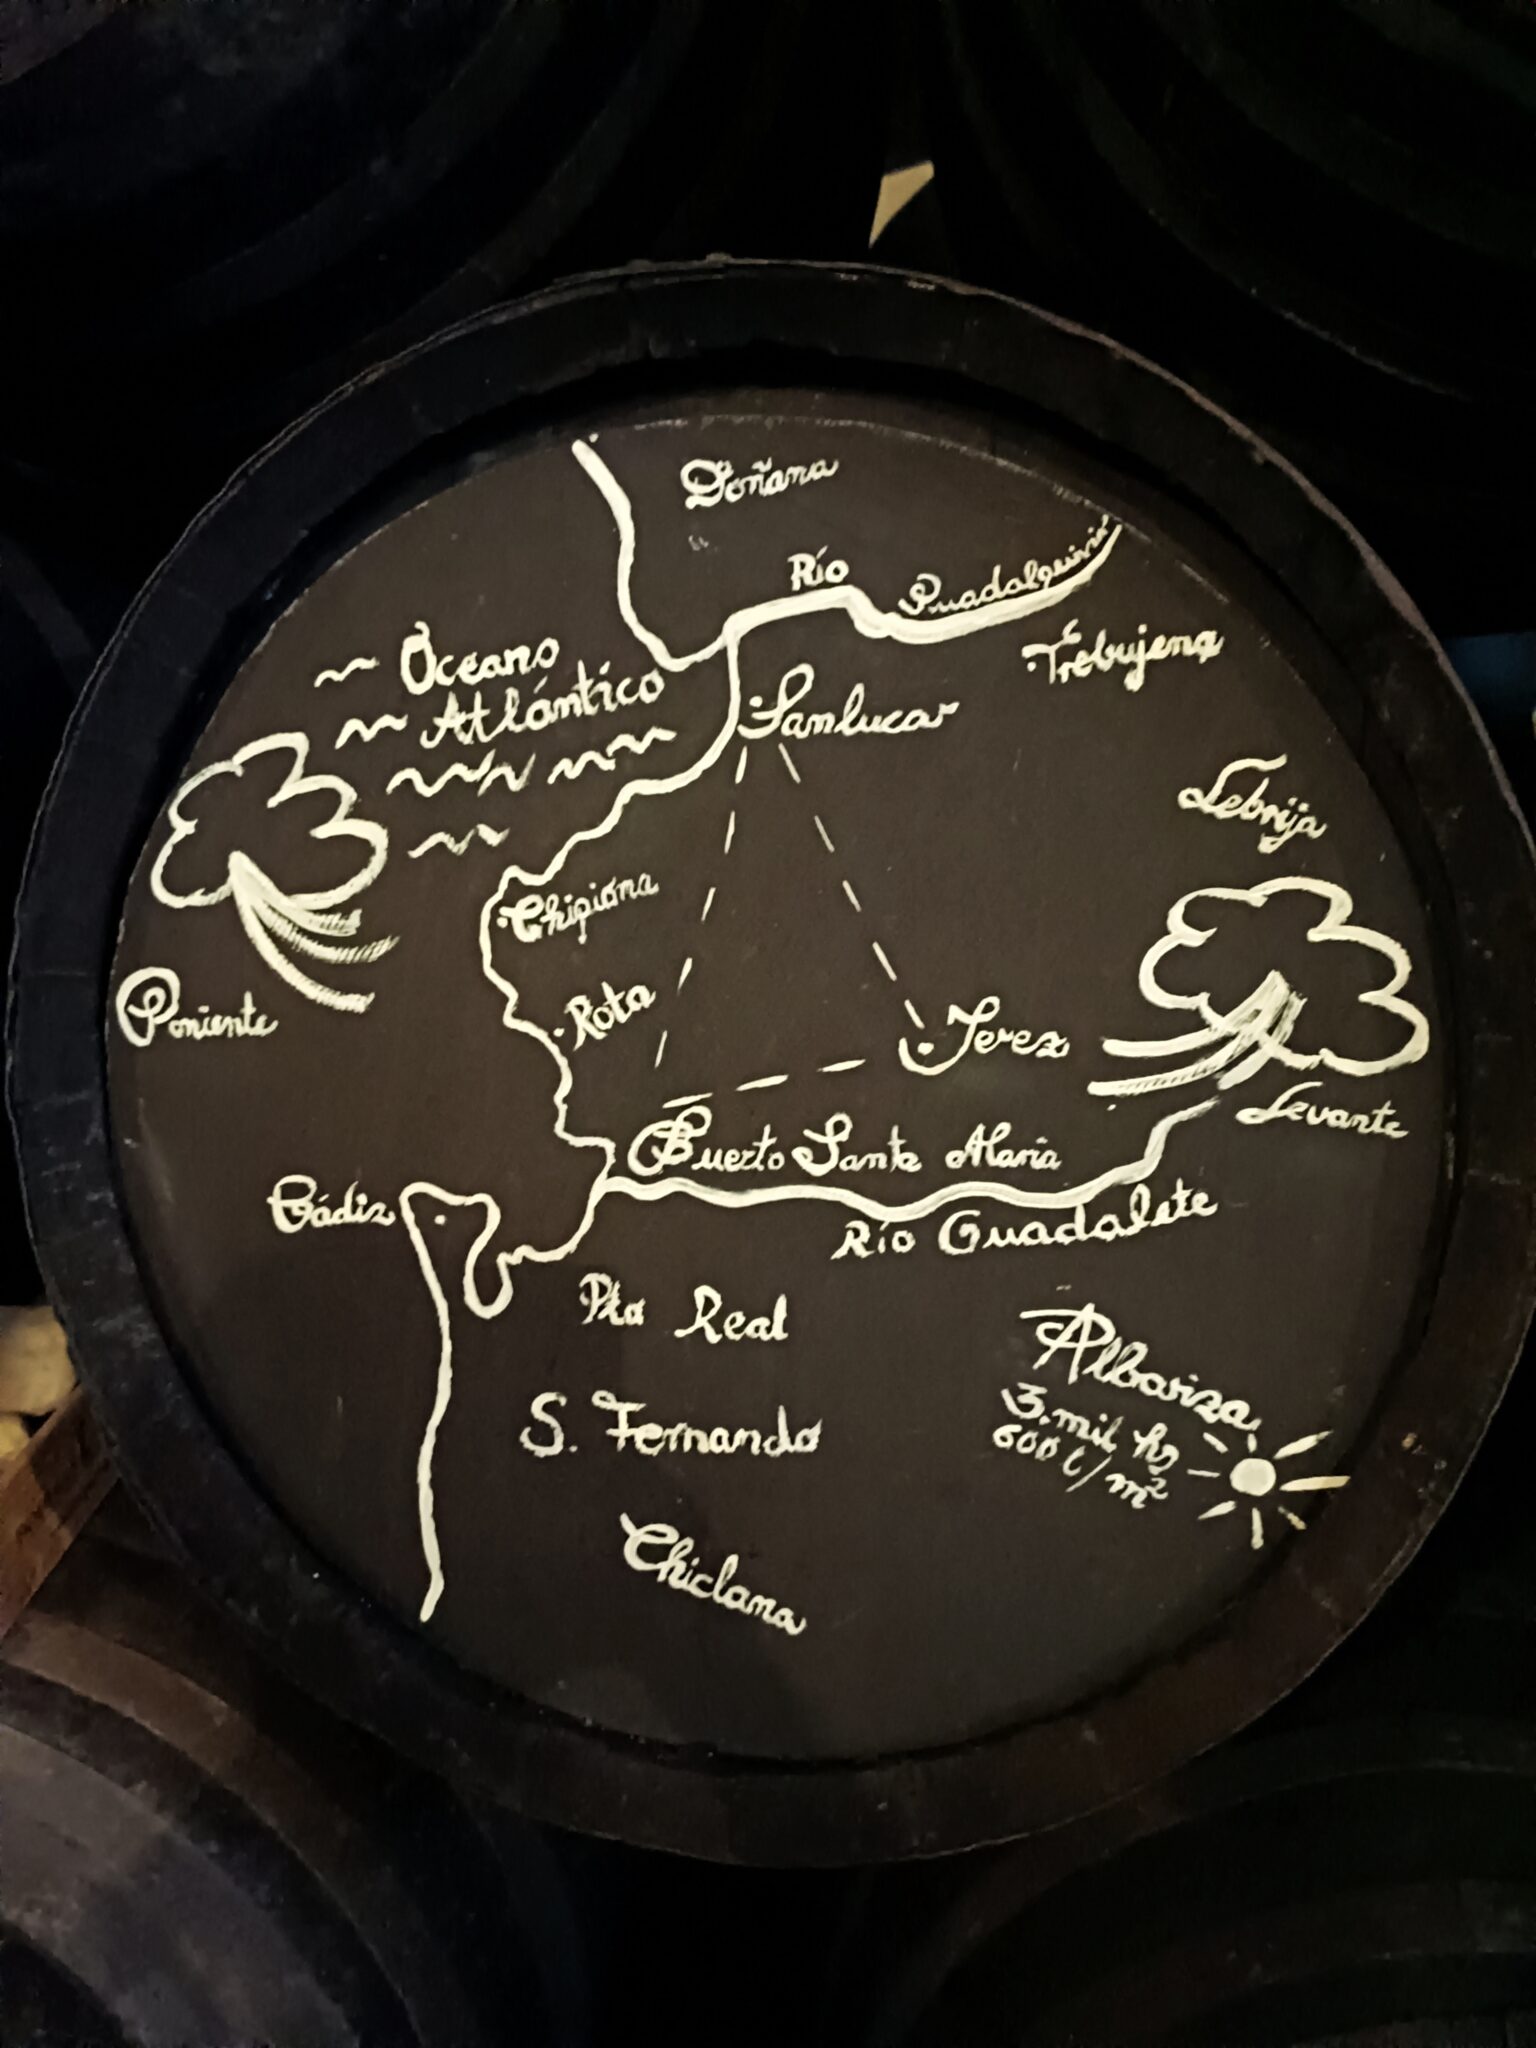 Doñana
Río Guadalquivir
Trebujena
Oceano
Atlántico
Sanlucar
Lebrija
Chipiona
Rota
Poniente
Jerez
Levante
Puerto Santa Maria
Cádiz
Río Guadalete
Pto Real
Albariza
3. mil hs
600 l/m²
S. Fernando
Chiclana